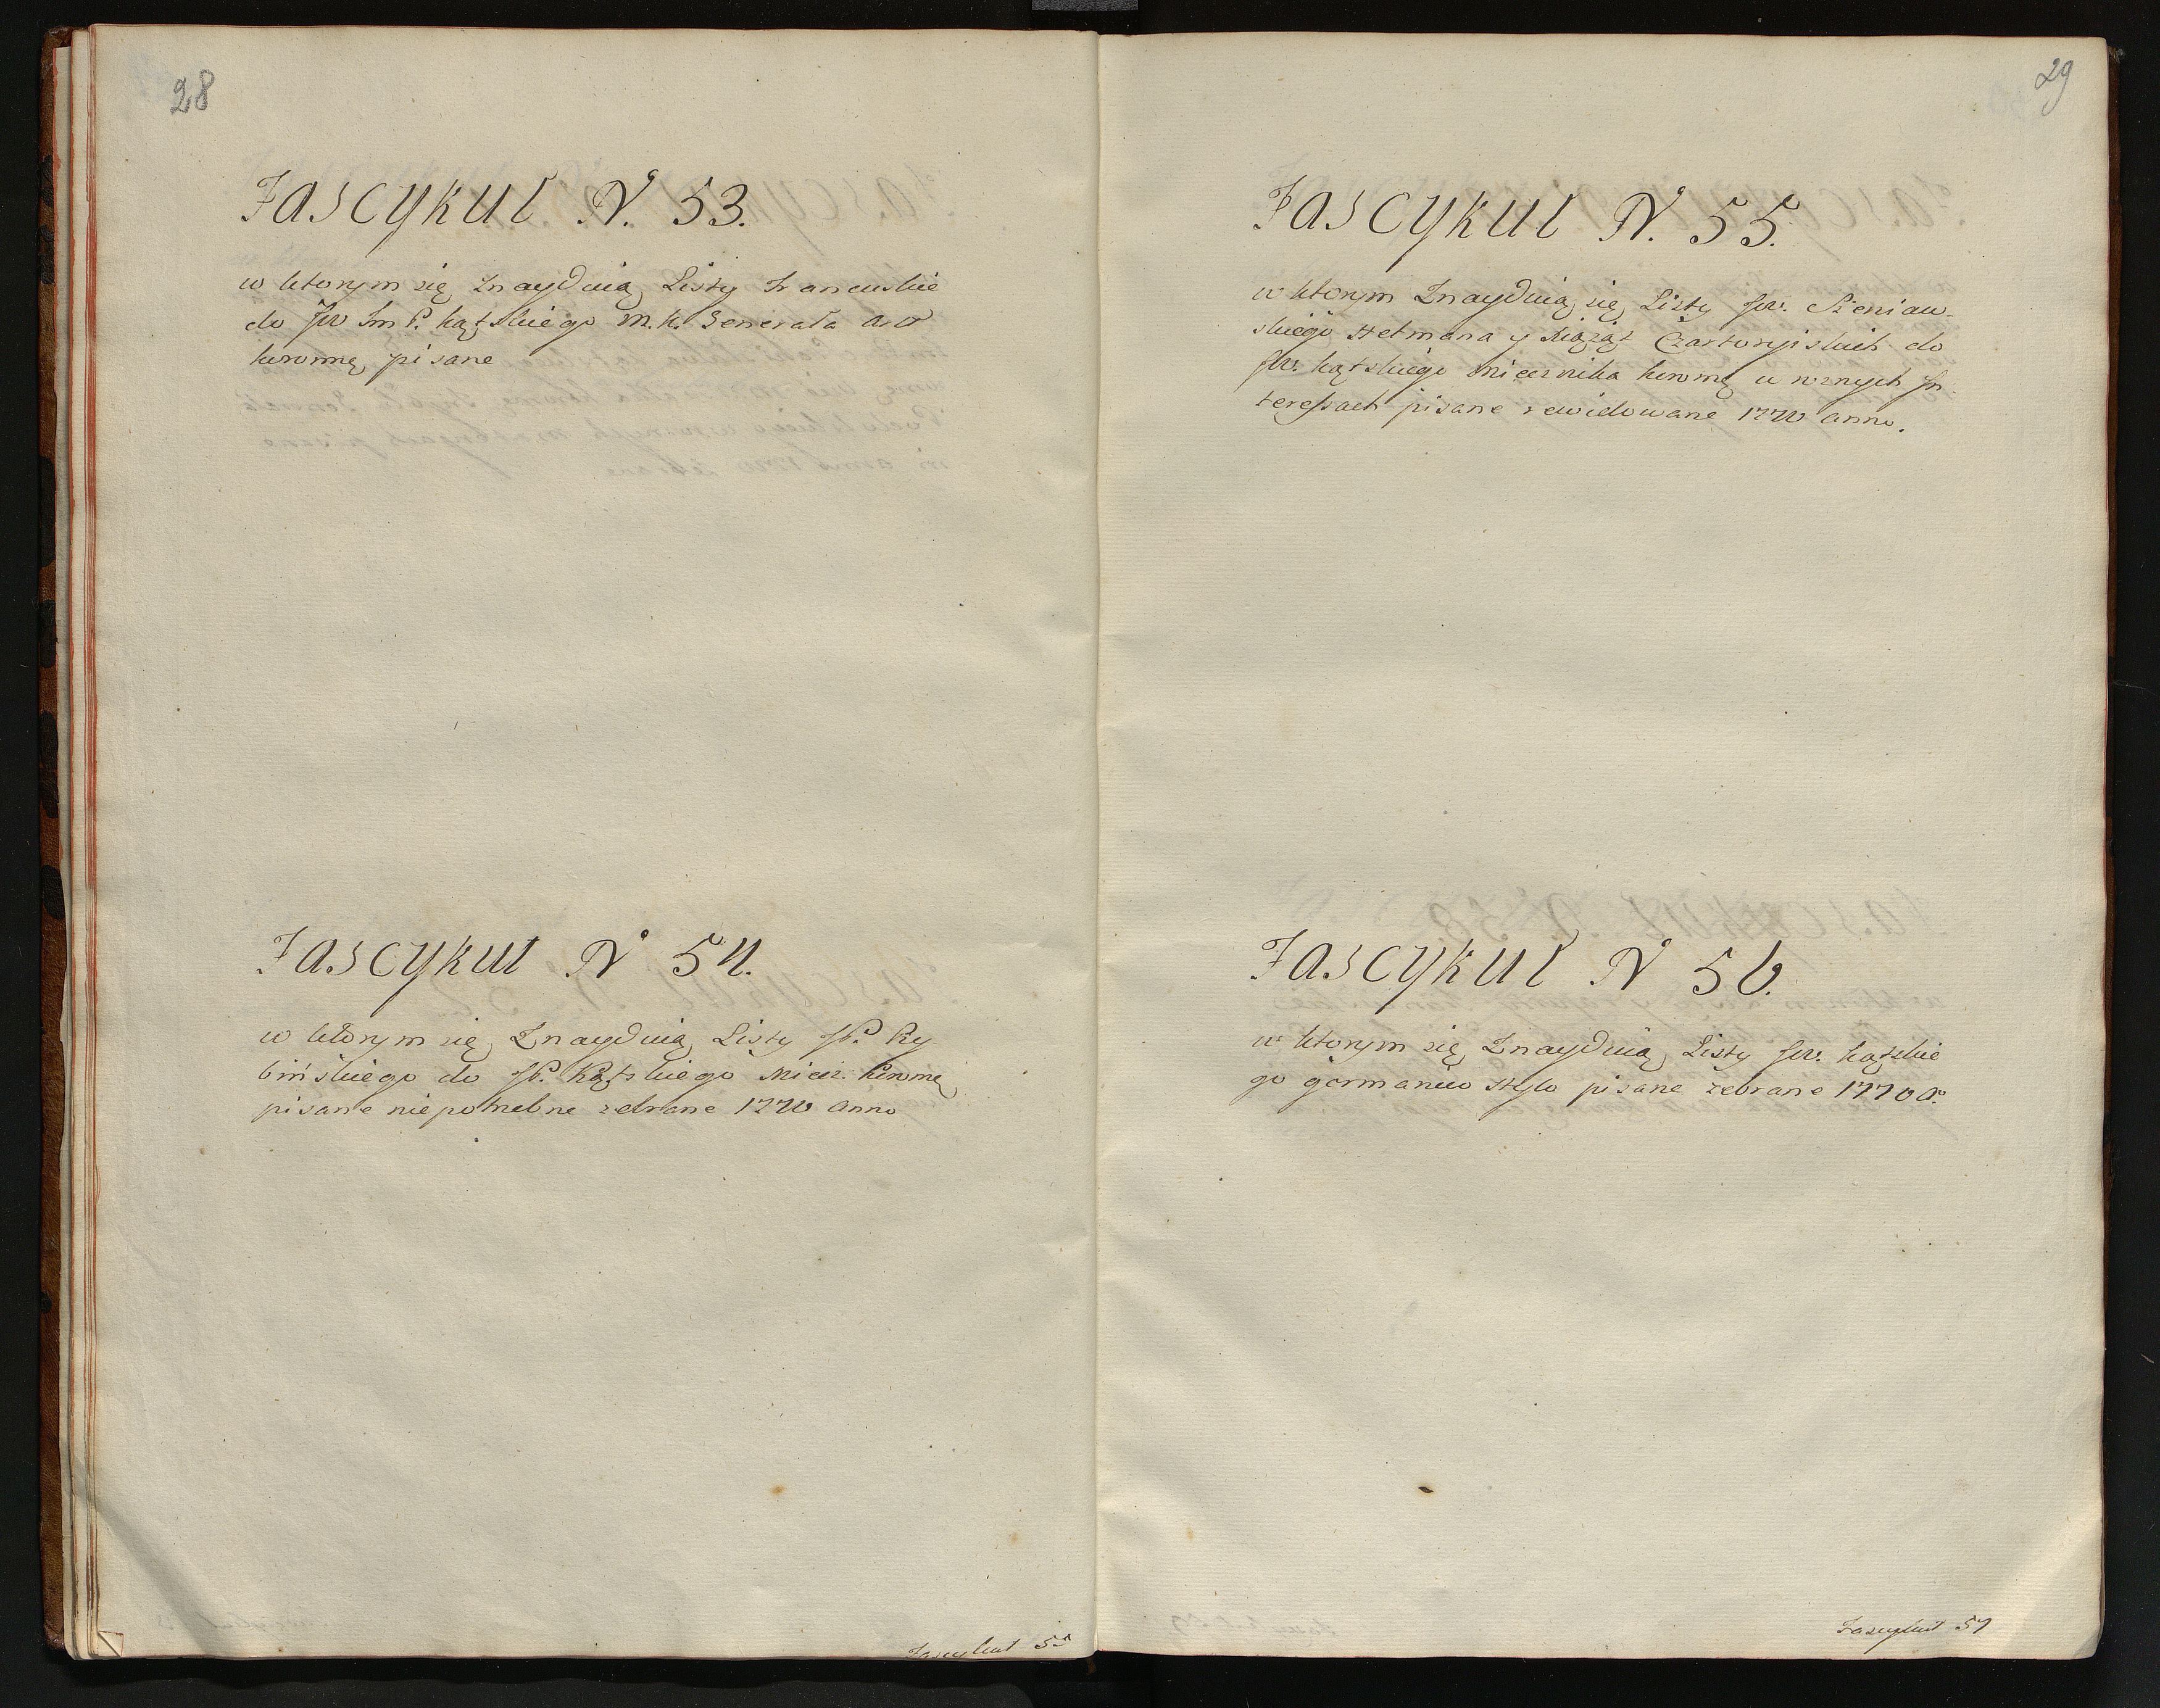 28
Fascykuł N. 53.
w ktorym się Znayduią Listy Francuskie
do JW Im P. kątskiego M. K. Generała Art
koronne pisane
Fascykuł N 54.
w ktorym się Znayduią Listy JP. Ry
bińskiego do JP. Kątskiego Miecz. koronne
pisane niepotrzebne zebrane 1770 Anno
Fascykuł 55
29
Fascykuł N. 55.
w ktorym Znayduią się Listy JW. Sieniaw
skiego Hetmana y Xiążąt Czartoryiskich do
JW. kątskiego miecznika koronne w roznych In
teressach pisane rewidowane 1770 anno.
Fascykuł N 56.
w ktorym się Znayduią Listy JW. kątskie
go germanico stylo pisane zebrane 1770 Ao
Fascykuł 57